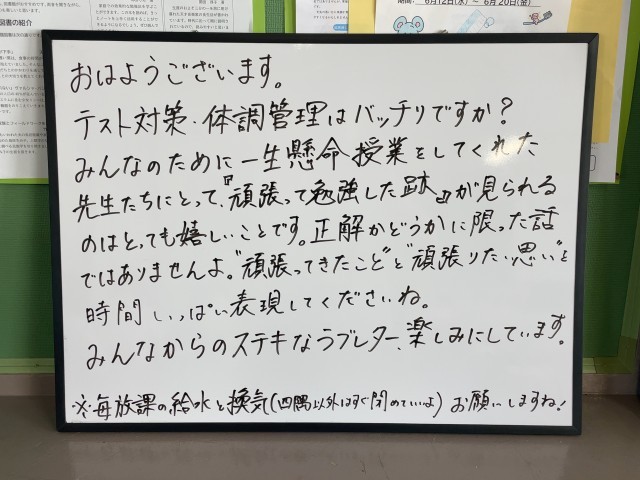 期間： 6月12日(水) ～ 6月20日(金)
図書の紹介
おはようございます。
テスト対策・体調管理はバッチリですか？
みんなのために一生懸命授業をしてくれた
先生たちにとって、『頑張って勉強した跡』が見られる
のはとっても嬉しいことです。正解かどうかに限った話
ではありませんよ。“頑張ってきたこと”と“頑張りたい思い”を
時間いっぱい表現してくださいね。
みんなからのステキなラブレター、楽しみにしています。
※毎放課の給水と換気(四隅以外はすぐ閉めていいよ)お願いしますね！